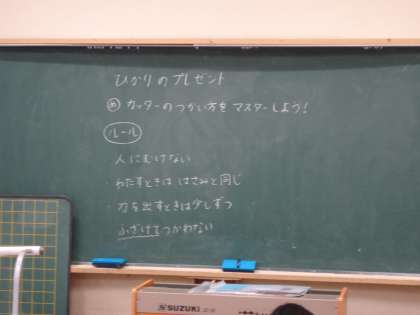 ひかりのプレゼント
め カッターのつかい方をマスターしよう!
ルール
人にむけない
・わたすときは はさみと同じ
・刃を出すときは少しずつ
ふざけてつかわない
SUZUKI